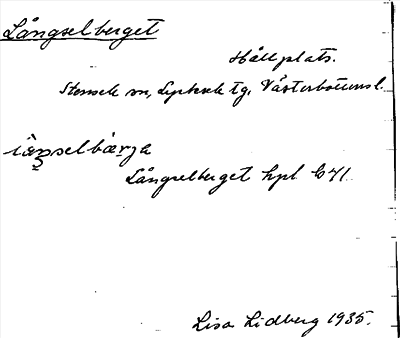 Långselberget
Hållplats.
Stensele sn, Lycksele tg, Västerbottens l.
Långselberget hpl
Lisa Lidberg 1935.